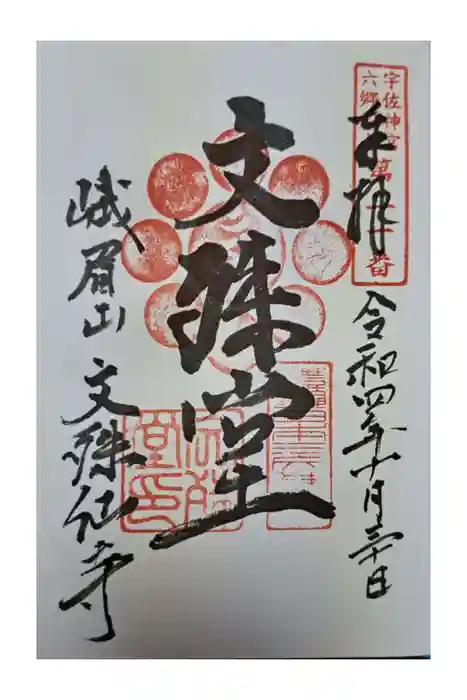 宇佐神宮
六郷
奉拝
令和四年十月三十日
文殊堂
峨眉山 文殊仙寺